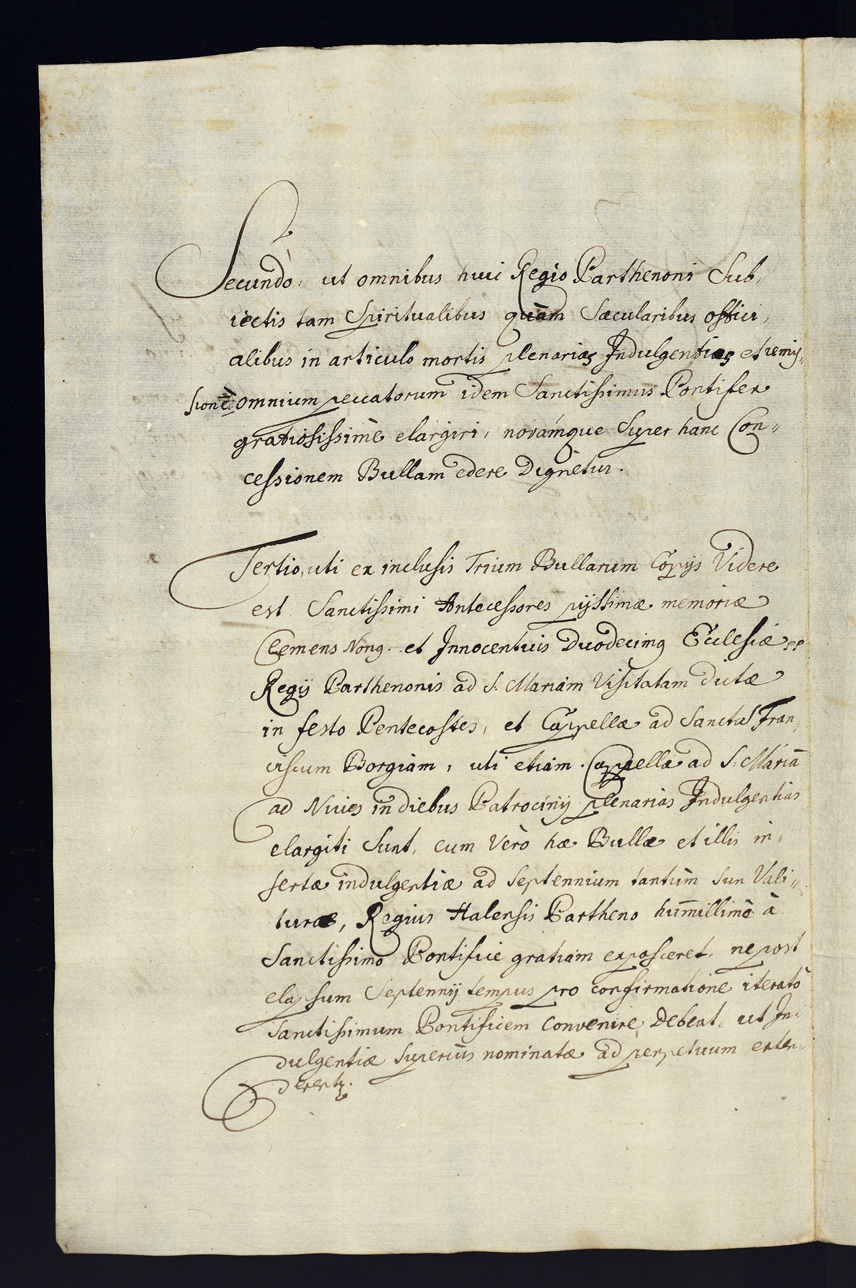 Secundò, ut omnibus huic Regio Parthenoni Sub,
iectis tam Spiritualibus quàm Sæcularibus offici,
alibus in articulo mortis plenarias Indulgentias et remis,
sionē omnium peccatorum idem Sanctissimus Pontifex
gratiosissimè elargiri, novámque Super hanc Con=
cessionem Bullam edere Dignetur.
Tertio, uti ex inclusis Trium Bullarum Copijs Videre
est Sanctissimi Antecessores pijssimæ memoriæ
Clemens Nong. et Innocentius Duodecimg Ecclesiæ
Regij Parthenonis ad S. Mariam Visitatam dictæ
in festo Pentecostes, et Cappellæ ad Sanctū Fran,
ciscum Borgiam, uti etiam Cappellæ ad S. Mariā
ad Nives in diebus Patrocinij plenarias Indulgentias
elargiti Sunt, cum Verò hæ Bullæ et illis in,
sertæ indulgentiæ ad Septennium tantùm sun Vali=
turæ, Regius Halensis Partheno humillimè à
Sanctissimo Pontifice gratiam exposceret, ne post
elapsum Septennij tempus pro confirmatione iteratò
Sanctissimum Pontificem Convenire Debeat, ut In,
dulgentiæ Superiùs nominatæ ad perpetuum exten,
derentz.